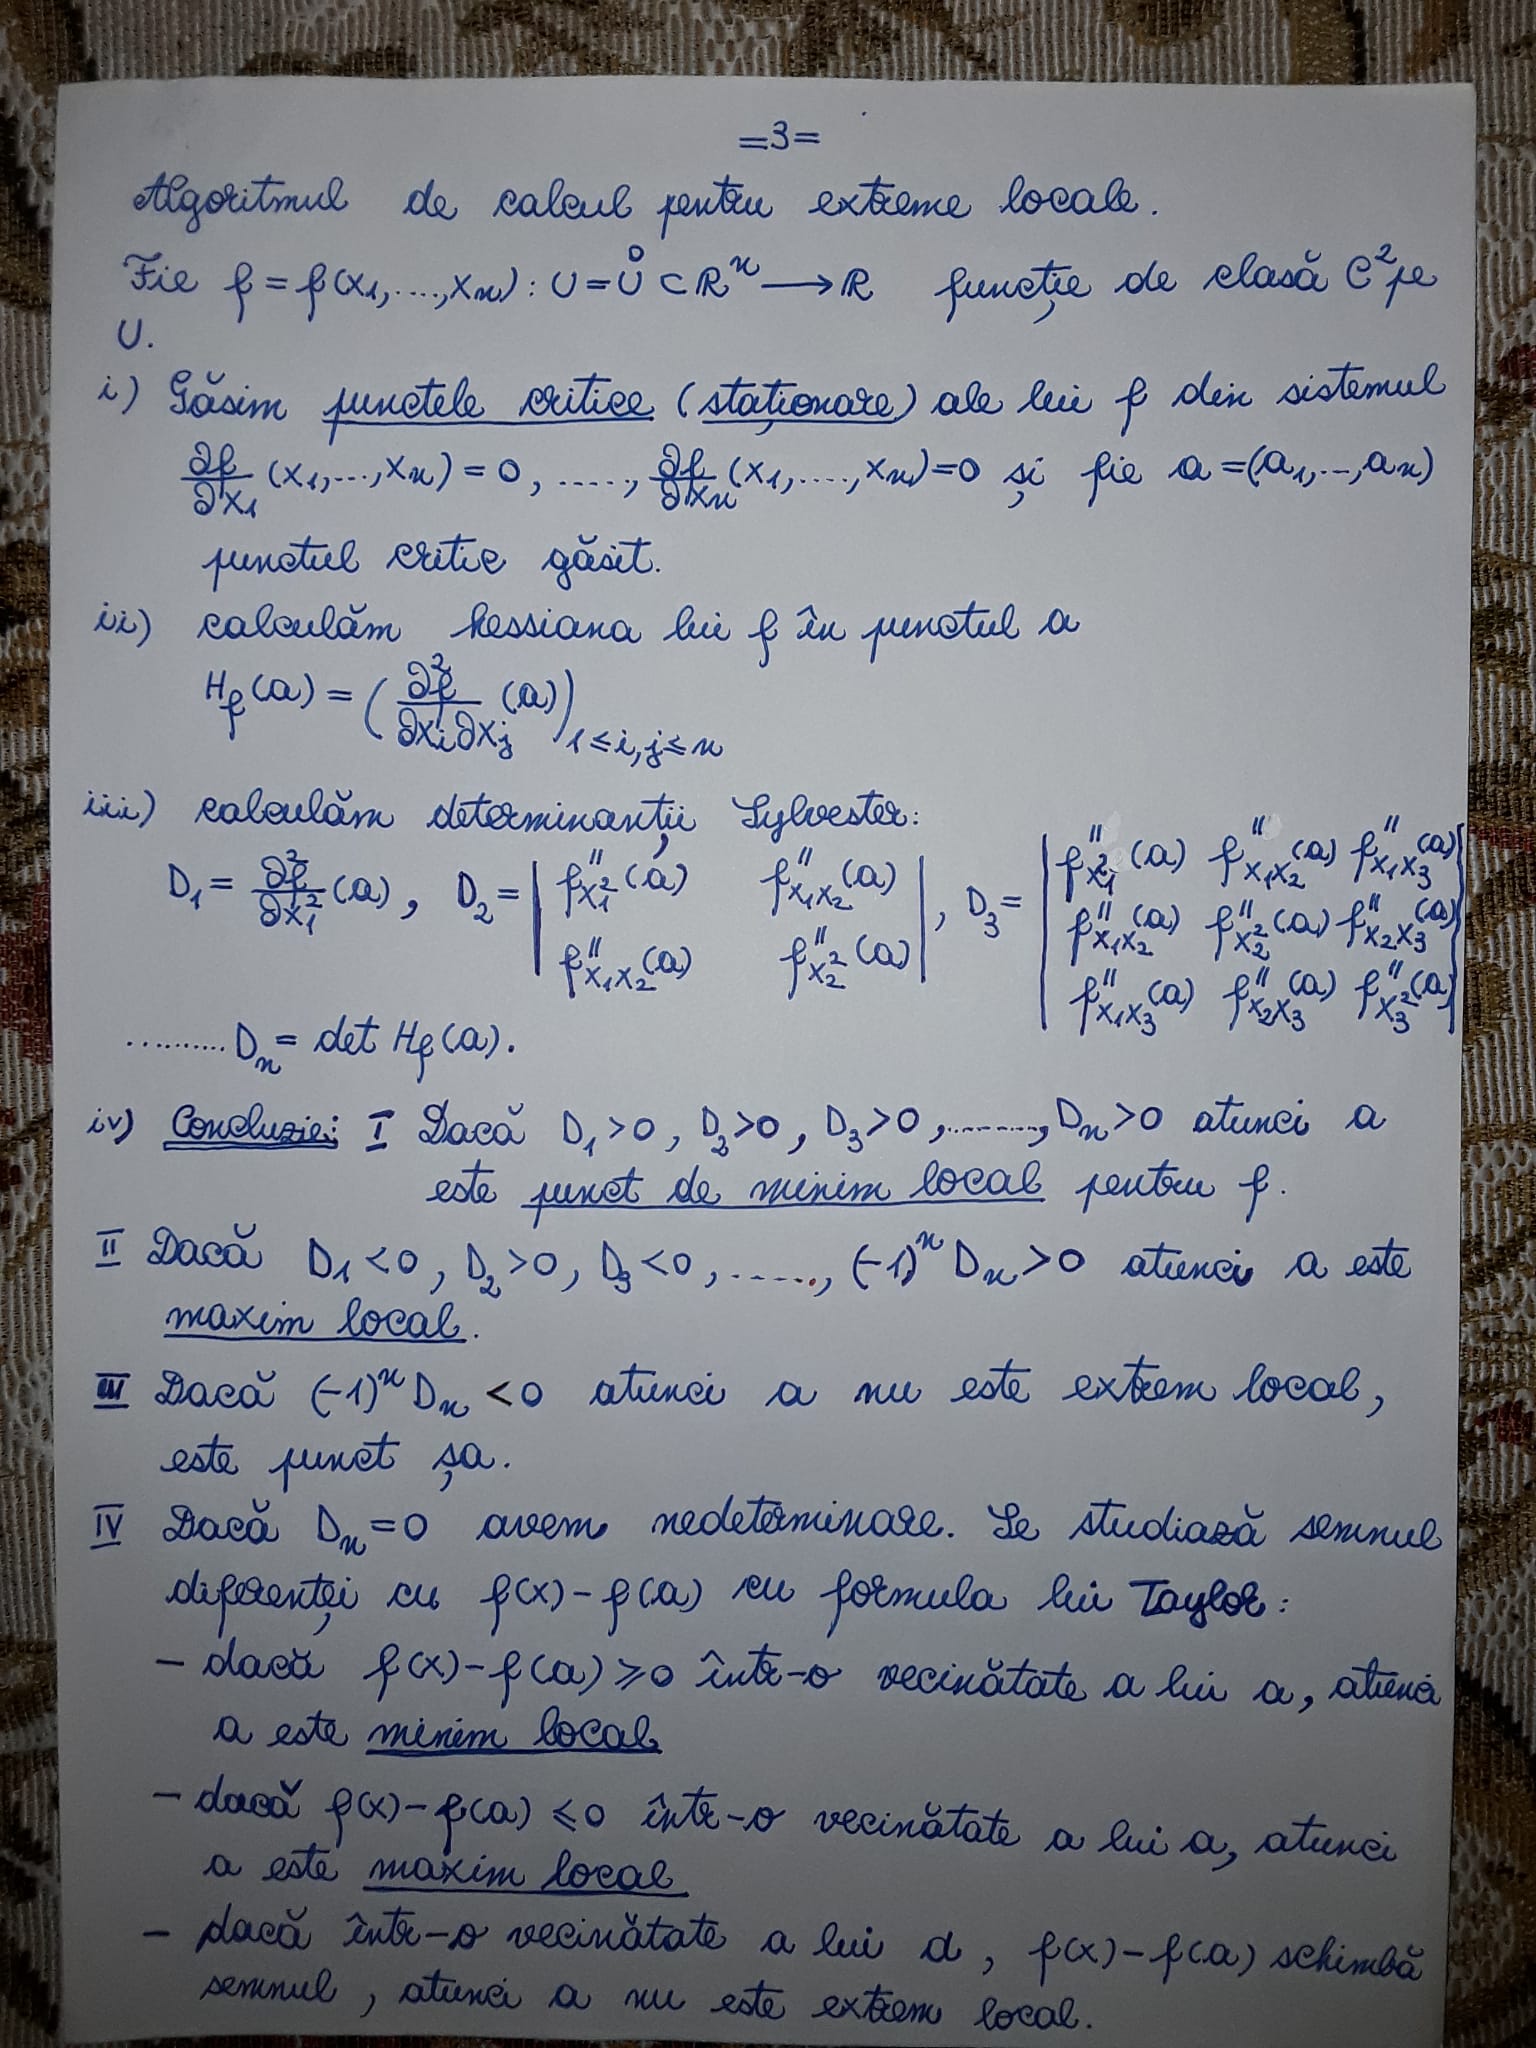 =3=
Algoritmul de calcul pentru extreme locale.
Fie f = f(x₁,....,xₙ) : U = Ů ⊂ ℝⁿ ⟶ ℝ funcție de clasă C² pe
U.
i) Găsim punctele critice (staționare) ale lui f din sistemul
∂f/∂x₁ (x₁,...,xₙ) = 0, ....., ∂f/∂xₙ (x₁,....,xₙ) = 0 și fie a = (a₁,..,aₙ)
punctul critic găsit.
ii) calculăm hessiana lui f în punctul a
H_f(a) = (∂²f/∂xᵢ∂xⱼ (a))_{1≤i,j≤n}
iii) calculăm determinanții Sylvester:
D₁ = ∂²f/∂x₁² (a), D₂ = | f''_{x₁²}(a) f''_{x₁x₂}(a) |, D₃ = | f''_{x₁²}(a) f''_{x₁x₂}(a) f''_{x₁x₃}(a) |
| f''_{x₁x₂}(a) f''_{x₂²}(a) | | f''_{x₁x₂}(a) f''_{x₂²}(a) f''_{x₂x₃}(a) |
| f''_{x₁x₃}(a) f''_{x₂x₃}(a) f''_{x₃²}(a) |
.......... Dₙ = det H_f(a).
iv) Concluzie: I Dacă D₁>0, D₂>0, D₃>0, .........., Dₙ>0 atunci a
este punct de minim local pentru f.
II Dacă D₁<0, D₂>0, D₃<0, ......, (-1)ⁿ Dₙ>0 atunci a este
maxim local.
III Dacă (-1)ⁿ Dₙ <0 atunci a nu este extrem local,
este punct șa.
IV Dacă Dₙ=0 avem nedeterminare. Se studiază semnul
diferenței cu f(x)-f(a) cu formula lui Taylor:
- dacă f(x)-f(a) ≥0 într-o vecinătate a lui a, atunci
a este minim local
- dacă f(x)-f(a) ≤0 într-o vecinătate a lui a, atunci
a este maxim local
- dacă într-o vecinătate a lui a, f(x)-f(a) schimbă
semnul, atunci a nu este extrem local.